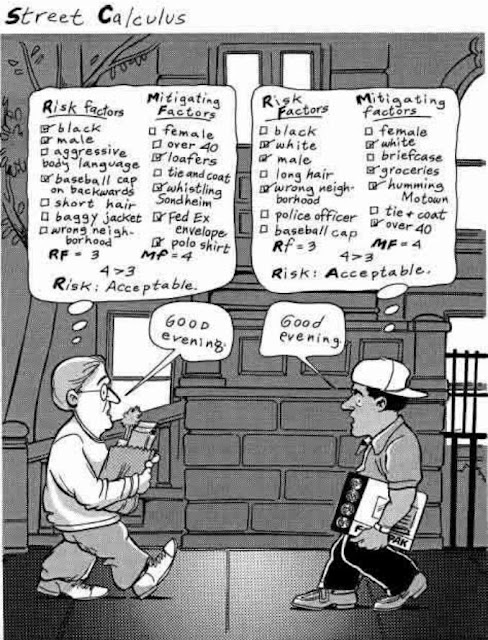 Street Calculus
Risk factors
☑ black
☑ male
☐ aggressive
body language
☑ baseball cap
on backwards
☐ short hair
☐ baggy jacket
☐ wrong neigh-
borhood
RF = 3
Mitigating
Factors
☐ female
☐ over 40
☑ loafers
☐ tie and coat
☑ whistling
Sondheim
☑ Fed Ex
envelope
☑ polo shirt
MF = 4
4 > 3
Risk: Acceptable.
Risk
Factors
☐ black
☑ white
☑ male
☐ long hair
☑ wrong neigh-
borhood
☐ police officer
☐ baseball cap
Rf = 3
Mitigating
factors
☐ female
☑ white
☐ briefcase
☑ groceries
☑ humming
Motown
☐ tie + coat
☑ over 40
MF = 4
4 > 3
Risk: Acceptable.
GOOD
evening.
Good
evening.
PAK